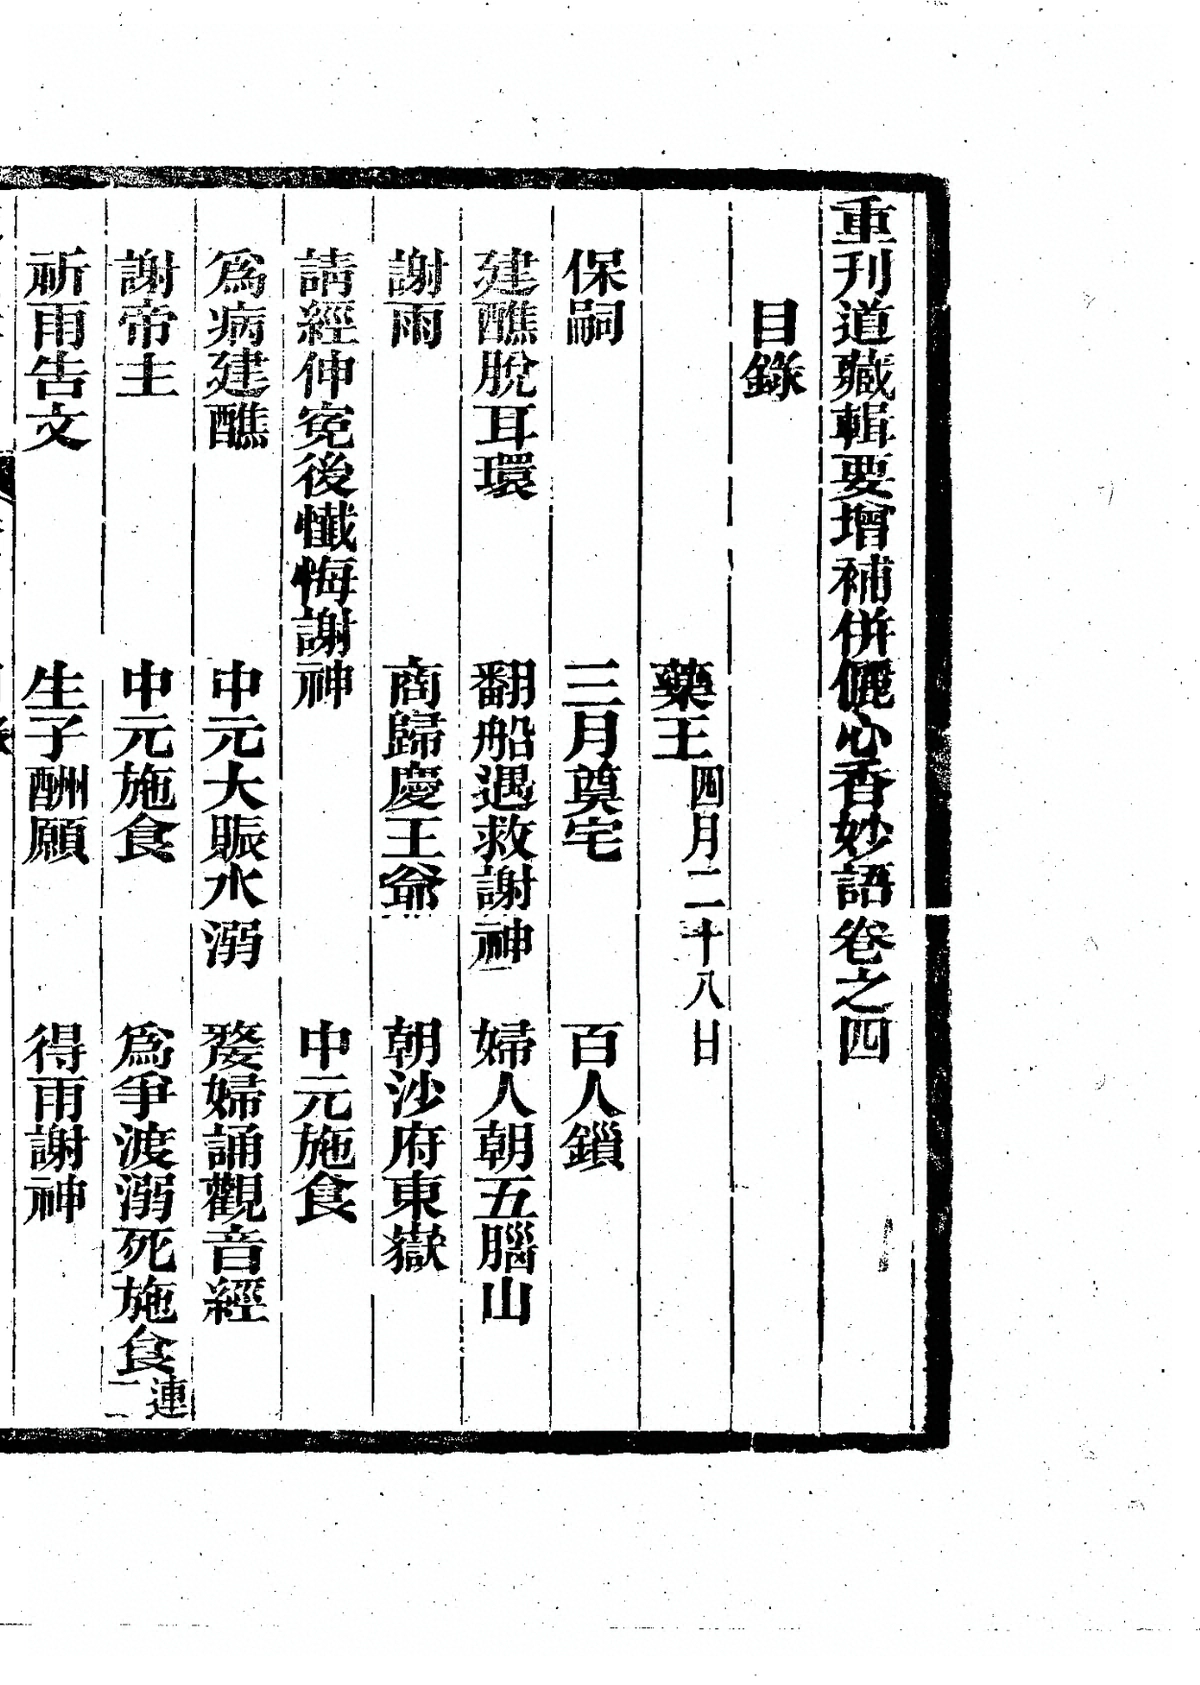 重刊道藏輯要增補併儷心香妙語卷之四
目錄
藥王四月二十八日
保嗣　三月奠宅　百人鎖
建醮脫耳環　翻船遇救謝神　婦人朝五腦山
謝雨　商歸慶王爺　朝沙府東嶽
請經伸寃後懺悔謝神　中元施食
爲病建醮　中元大賑水溺　婺婦誦觀音經
謝帝主　中元施食　爲爭渡溺死施食連二
祈雨告文　生子酬願　得雨謝神